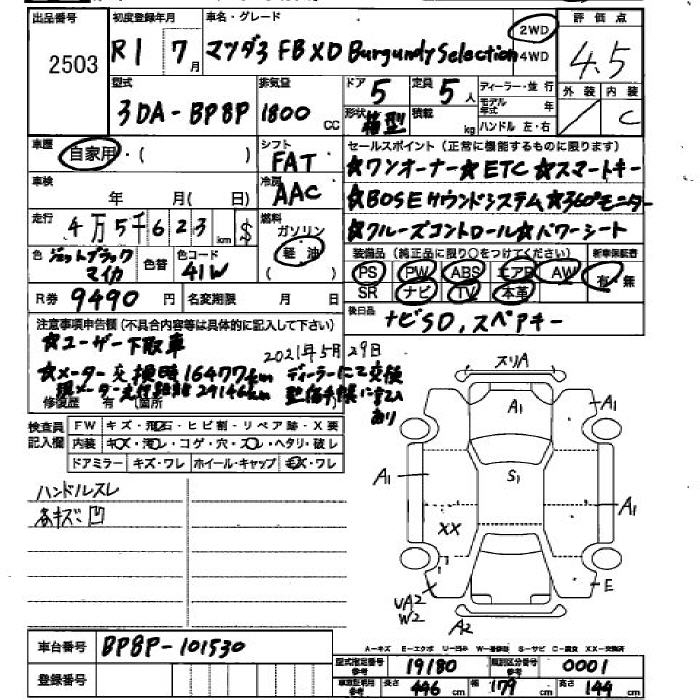 出品番号 初度登録年月 車名・グレード 評価点
2503 R1 7月 マツダ3 FB XD Burgundy Selection 2WD 4WD 4.5
型式 排気量 ドア 定員 ディーラー・並行 外装 内装
3DA-BP8P 1800cc 5 5人 モデル年式 年 C
形状 箱型 積載 kg ハンドル 左・右
車歴 自家用・( ) シフト FAT セールスポイント(正常に機能するものに限ります)
☆ワンオーナー☆ETC☆スマートキー
車検 年 月(日) 冷房 AAC ☆BOSEサウンドシステム☆360°モニター
走行 4万5千623km $ 燃料 ガソリン 軽油 ( ) ☆クルーズコントロール☆パワーシート
色 ジェットブラックマイカ 色替 色コード 41W 装備品(純正品に限り○をつけてください) 新車保証書
PS PW ABS エアB AW 有・無
SR ナビ TV 本革
R券 9490円 名変期限 月 日 後日品 ナビSD,スペアキー
注意事項申告欄(不具合内容等は具体的に記入して下さい)
☆ユーザー下取車 2021年5月29日
☆メーター交換時16477km ディーラーにて交換
現メーター走行距離29146km 整備手帳に記入あり
修復歴 有 (箇所
検査員記入欄 FW キズ・飛石・ヒビ割・リペア跡・X要
内装 キズ・汚レ・コゲ・穴・スレ・ヘタリ・破レ
ドアミラー キズ・ワレ ホイール・キャップ キズ・ワレ
ハンドルスレ
各キズ凹
スリA
A1
A1
A1
S1
A1
XX
UA2
W2
A2
E
車台番号 BP8P-101530
A-キズ E-エクボ U-凹み W-補修跡 S-サビ C-腐食 XX-交換済
登録番号
型式指定番号 参考 19180 類別区分番号 参考 0001
車検証明用 参考 長さ 446cm 幅 179cm 高さ 144cm